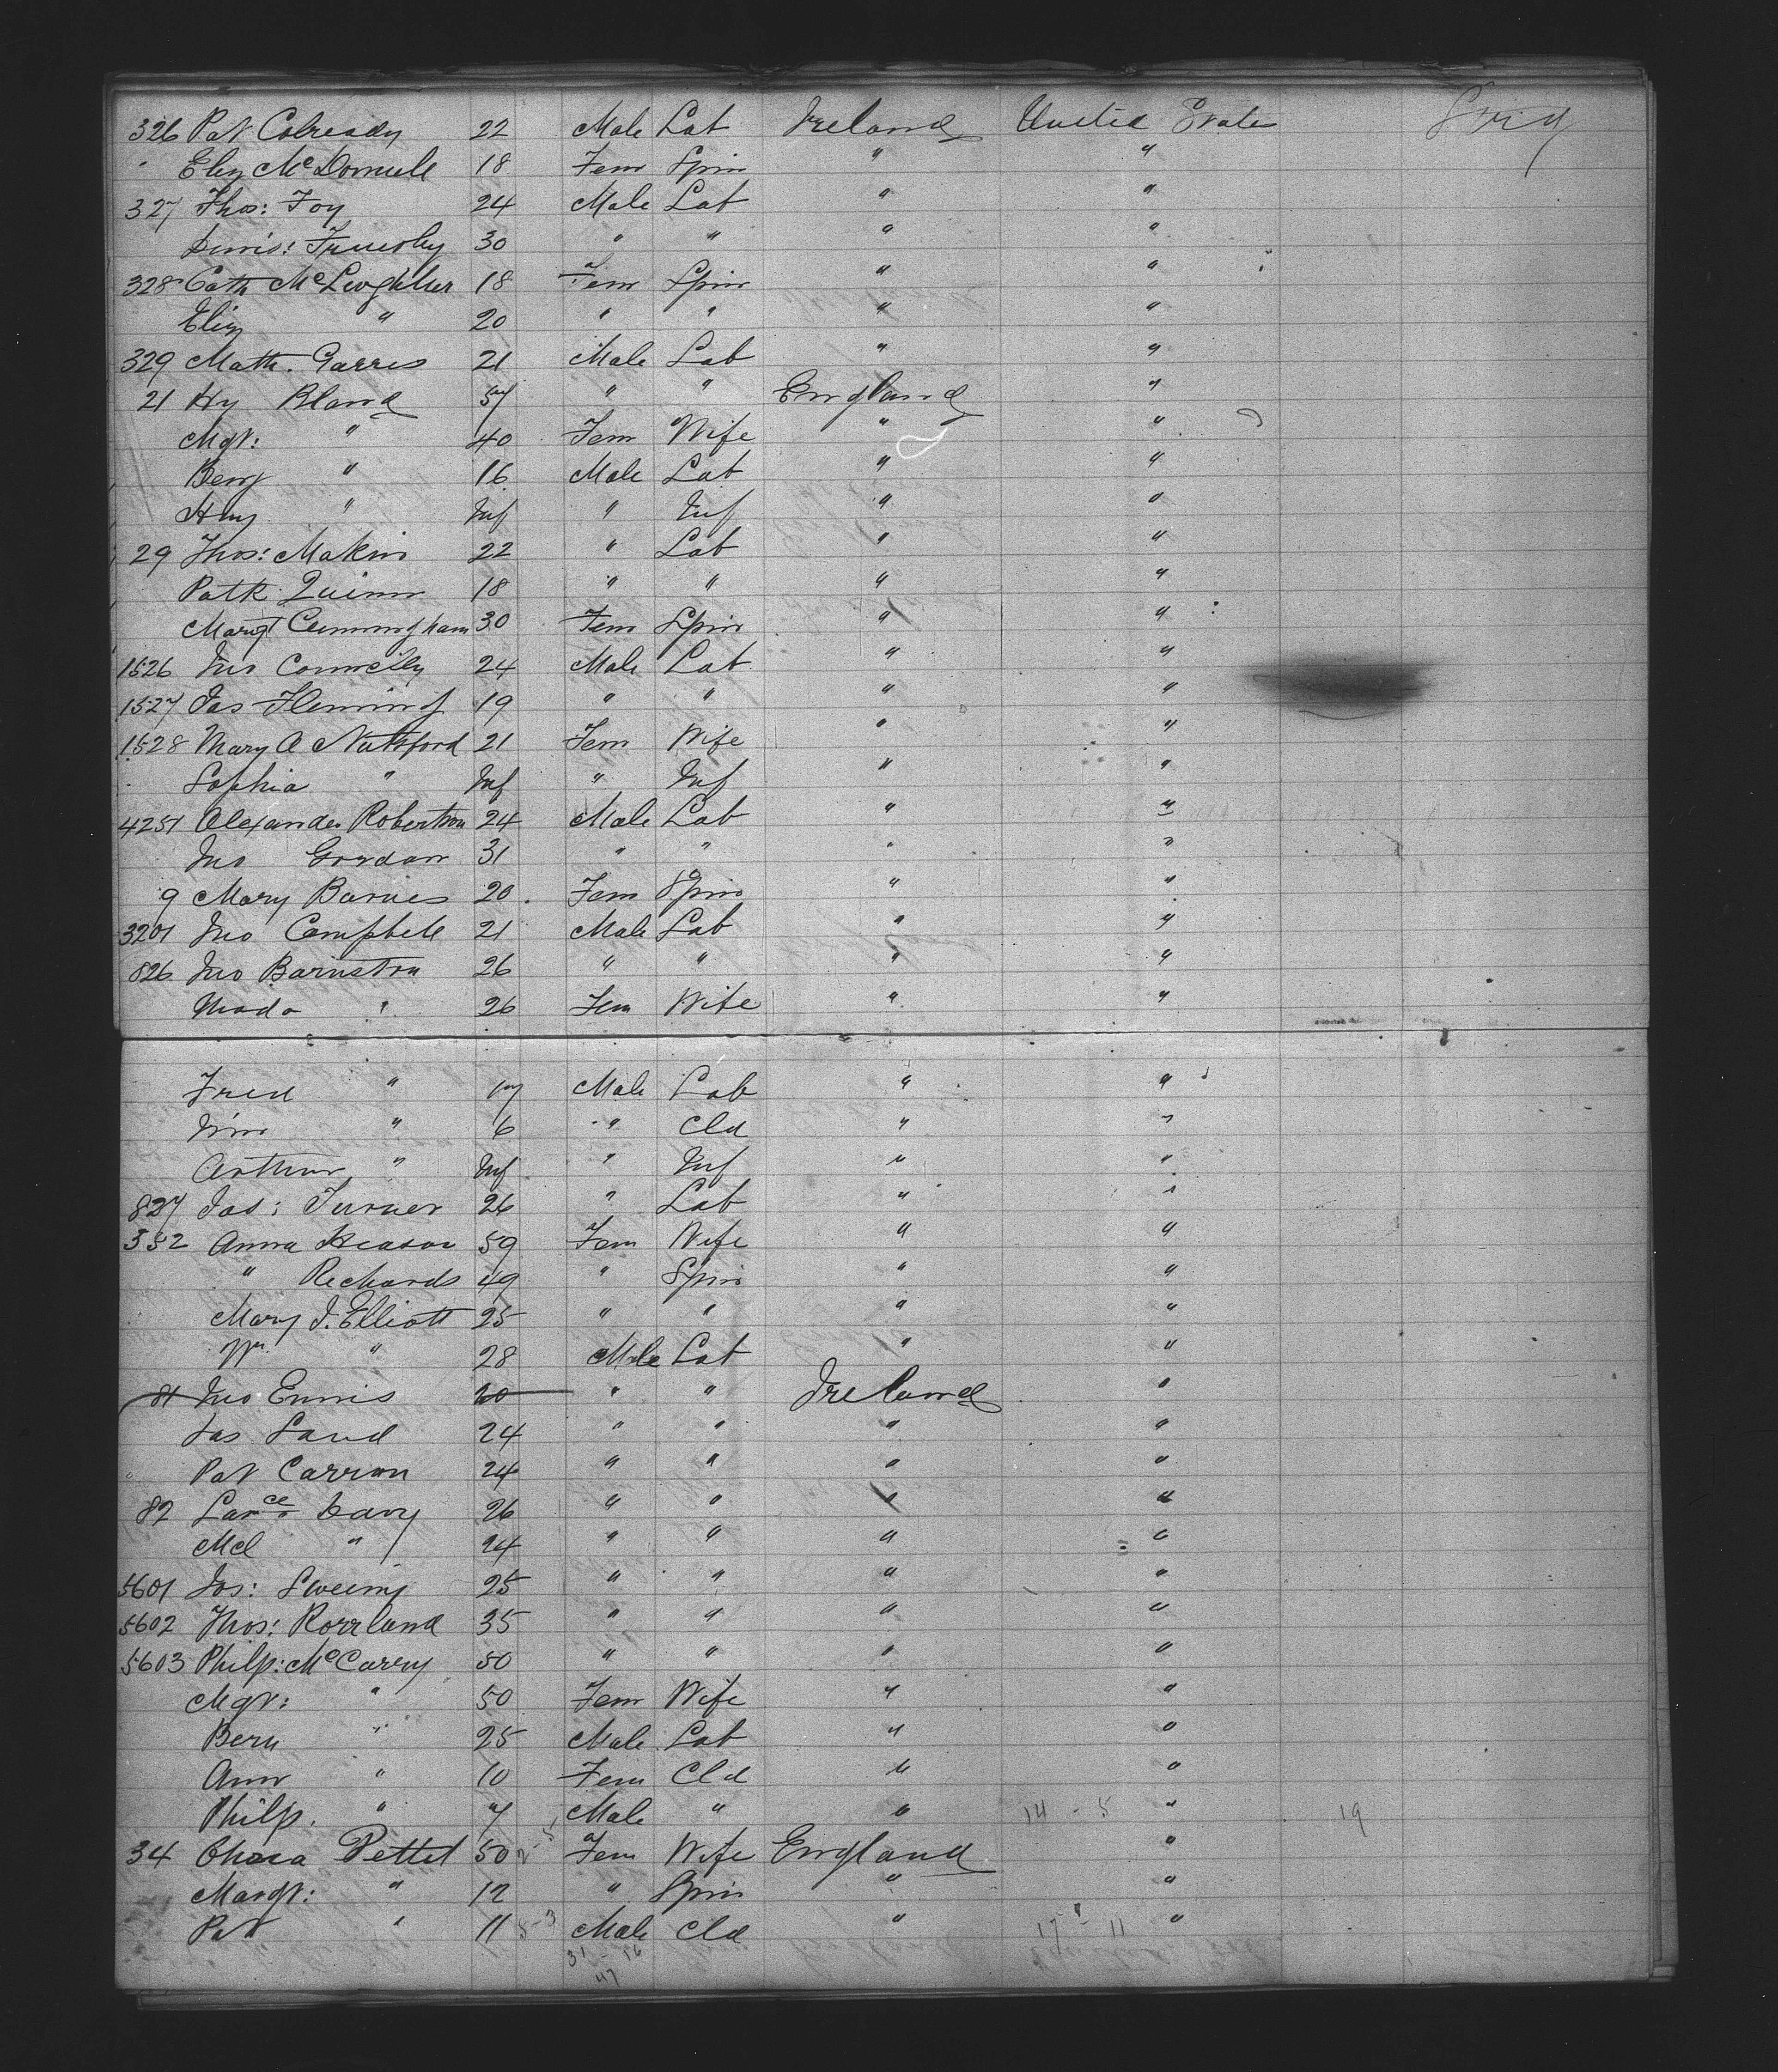 326 Pat Colreavy 22 Male Lab Ireland United States
" Eliz McDonnell 18 Fem Spin " "
327 Thos: Foy 24 Male Lab " "
30 " " " "
328 Cath McLoghlin 18 Fem Spin " "
Eliz " 20 " " " "
329 Math. Garris 21 Male Lab " "
21 Hy Bland 57 " " England "
Mgt: " 40 Fem Wife " "
Benj " 16 Male Lab " "
Hny " Inf " Inf " "
29 Thos: Makin 22 " Lab " "
Patk Quinn 18 " " " "
Margt Cunningham 30 Fem Spin " "
1526 Jno Connelly 24 Male Lab " "
1527 Jas Fleming 19 " " " "
1528 Mary A Nutsford 21 Fem Wife " "
Sophia " Inf " Inf " "
4251 Alexander Robertson 24 Male Lab " "
Jno Gordon 31 " " " "
9 Mary Barnes 20 Fem Spin " "
3201 Jno Campbell 21 Male Lab " "
826 Jno Barnston 26 " " " "
" 26 Fem Wife " "
Fred " 17 Male Lab " "
" 6 " Cld " "
Arthur " Inf " Inf " "
827 Jas: Turner 26 " Lab " "
352 Anna Heason 59 Fem Wife " "
" Richards 49 " Spin " "
Mary J. Elliott 25 " " " "
Wm " 28 Male Lab " "
81 Jno Ennis 20 " " Ireland "
Jas Land 24 " " " "
Pat Carron 24 " " " "
82 Larce Davy 26 " " " "
Mcl " 24 " " " "
5601 Jos: Sweeny 25 " " " "
5602 Thos: Rorrland 35 " " " "
5603 Philp: McCarry 50 " " " "
Mgt: " 50 Fem Wife " "
Bern " 25 Male Lab " "
Ann " 10 Fem Cld " "
Philp. " 7 Male " " 14 - 5 " 19
34 Pettet 50 Fem Wife England "
Margt: " 12 " Spin " "
Pat " 11 5-3 Male Cld " 17 - 11 "
31 - 16
47